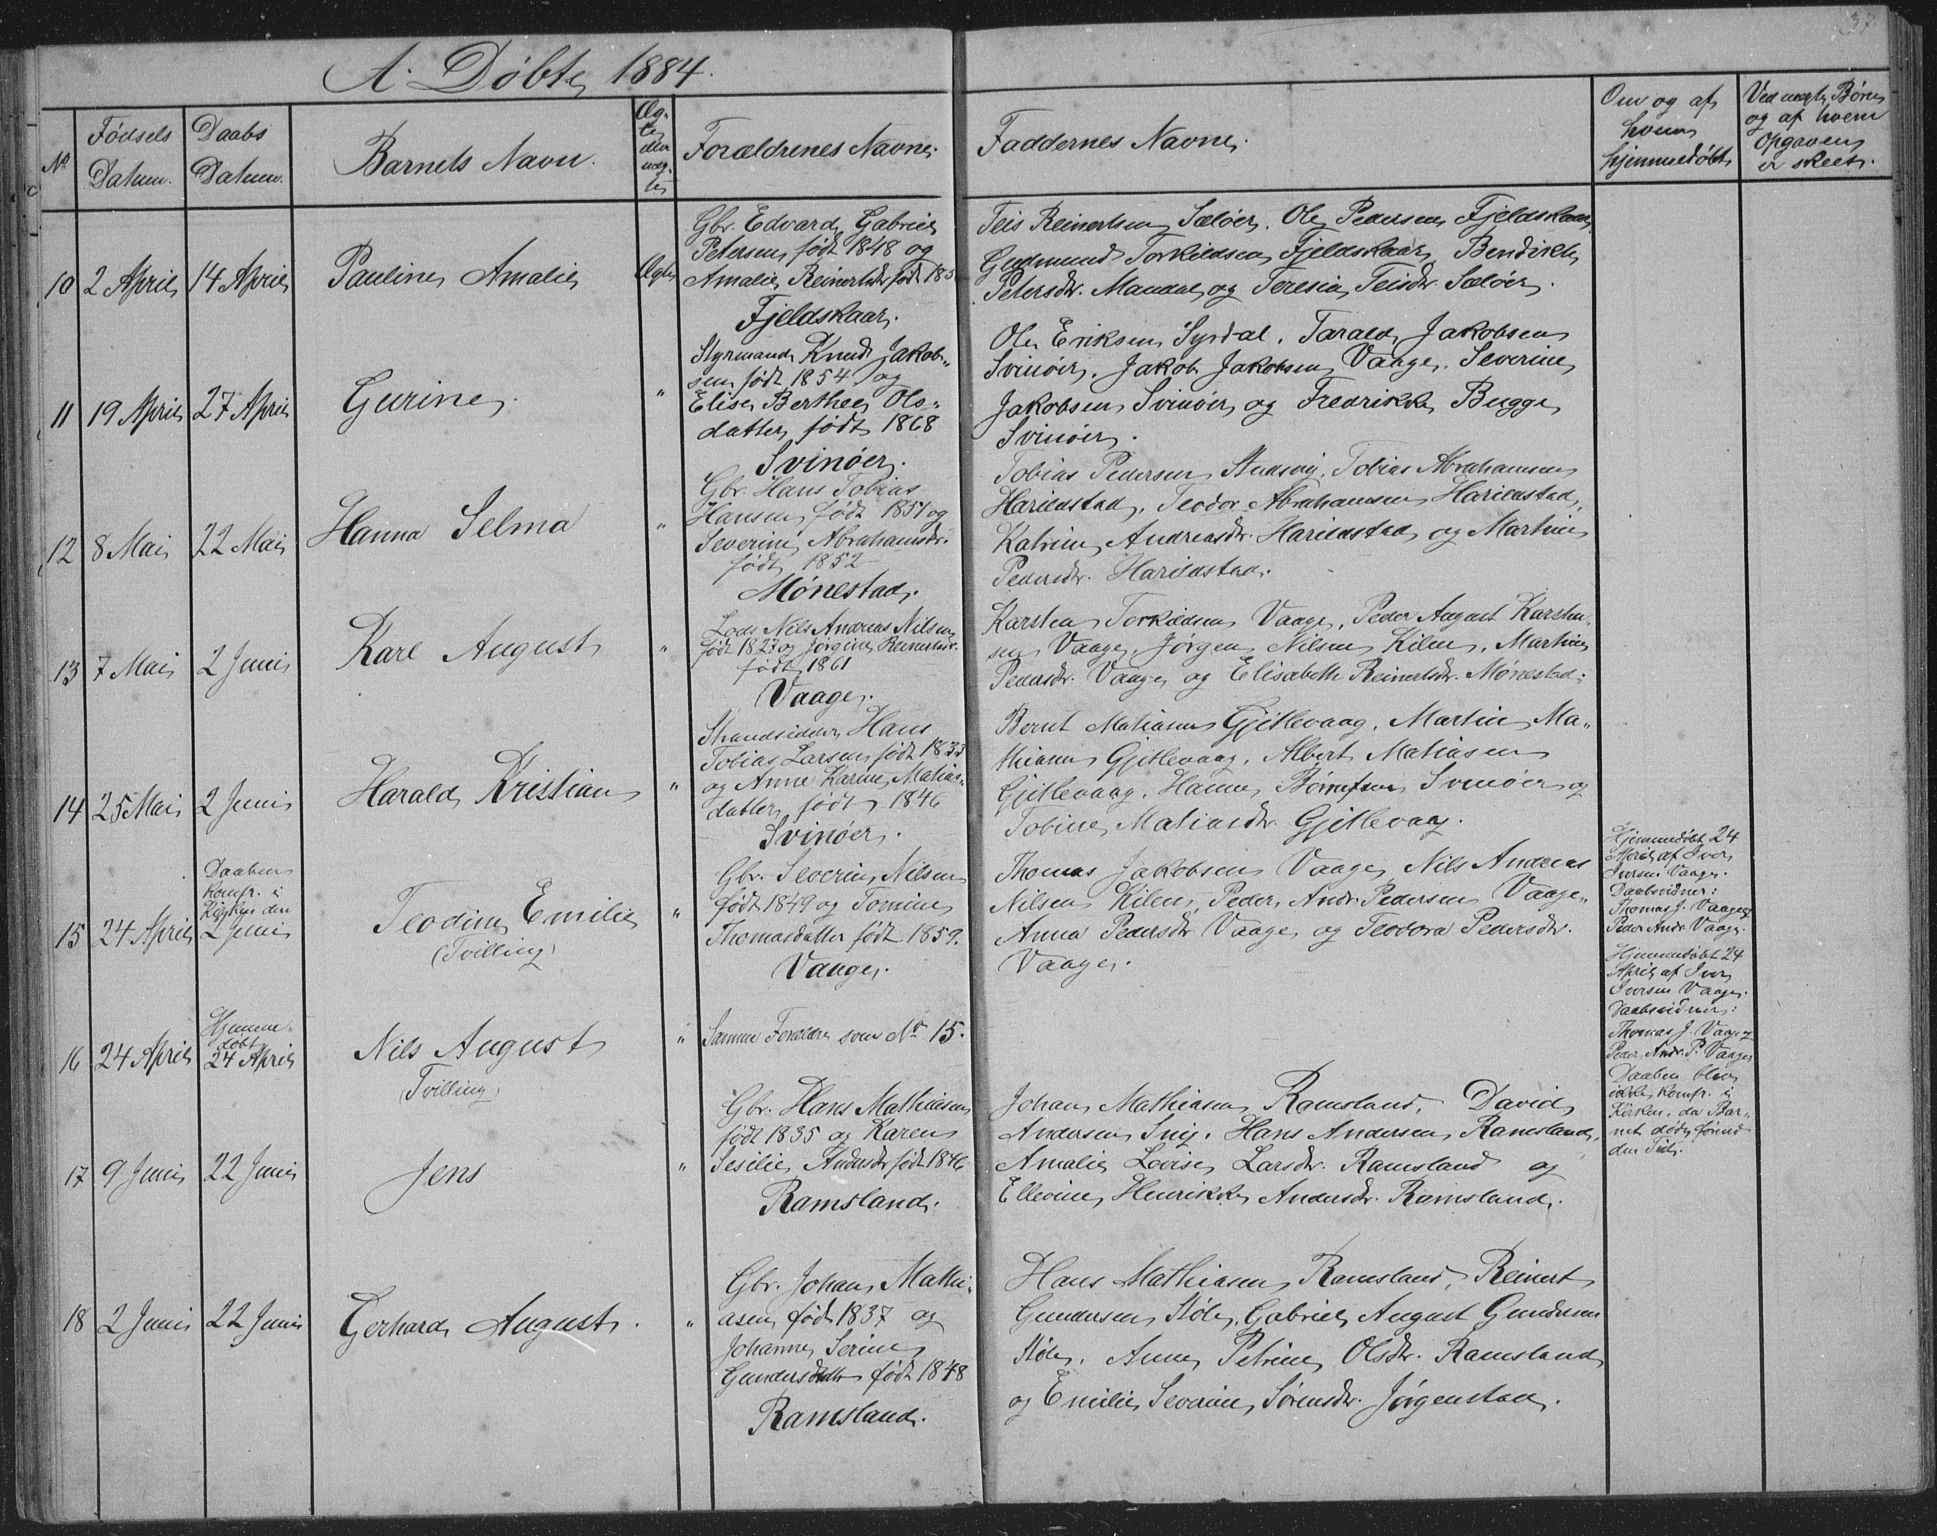 37
A. Døbte 1884.
No
Fødsels
Datum.
Daabs
Datum.
Barnets Navn.
Æg-
te
eller
uæg-
te
Forældrenes Navne.
Faddernes Navne.
Om og af
hvem
hjemmedøbt
Ved uægte Børn
og af hvem
Opgaven
er skeet.
10 2 April 14 April Pauline Amalie Ægte
Gbr. Edvard Gabriel
Petersen født 1848 og
Amalie Reinertsdr født 185
Fjeldskaar.
Teis Reinertsen Sæløer. Ole Pedersen Fjeldskaar
Gudmund Torkildsen Fjeldskaar, Bendikte
Petersdr. Mandal og Teresia Teisdr. Sæløer.
11 19 April 27 April Gurine "
Styrmand Knud Jakob-
sen født 1854 og
Elise Berthea Ols-
datter født 1868
Svinøer.
Ole Eriksen Syrdal. Tarald Jakobsen
Svinøer. Jakob Jakobsen Vaage. Severine
Jakobsen Svinøer og Fredrikke Bugge
Svinøer.
12 8 Mai 22 Mai Hanna Selma "
Gbr. Hans Tobias
Hansen født 1851 og
Severine Abrahamsdr.
født 1852
Mønestad.
Tobias Pedersen Tobias Abrahamsen
Harildstad, Teodor Abrahamsen Harildstad,
Katrine Andreasdr. Harildstad og Martine
Pedersdr. Harildstad.
13 7 Mai 2 Juni Karl August "
Lods Nils Andreas Nilsen
født 1827 og Jørgine Reinertsdr.
født 1861
Vaage.
Karsten Torkildsen Vaage, Peder August Karsten-
sen Vaage, Jørgen Nilsen Kilen, Martine
Pedersdr. Vaage og Elisabeth Reinertsdr. Mønestad.
14 25 Mai 2 Juni Harald Kristian "
Strandsidder Hans
Tobias Larsen født 1833
og Anne Karine Matias-
datter født 1846
Svinøer.
Bernt Matiasen Gjitlevaag, Martin Ma-
thiasen Gjitlevaag, Albert Matiasen
Gjitlevaag, Hanne Svinøer og
Tobine Matiasdr. Gjitlevaag.
15 24 April
Daaben
konfr. i
Kirken den
2 Juni
Teodine Emilie
(Tvilling)
"
Gbr. Severin Nilsen
født 1849 og Tomine
Thomasdatter født 1859.
Vaage.
Thomas Jakobsen Vaage, Nils Andreas
Nilsen Kilen, Peder Andr. Pedersen Vaage,
Anna Pedersdr Vaage og Teodora Pedersdr.
Vaage.
Hjemmedøbt 24
April af Iver
Iversen Vaage.
Daabsvidner:
Thomas J. Vaage og
Peder Andr. Vaage.
16 24 April
Hjemme-
døbt
24 April
Nils August
(Tvilling)
"
Samme Forældre som No 15.
Hjemmedøbt 24
April af Iver
Iversen Vaage.
Daabsvidner:
Thomas J. Vaage og
Peder Andr. P. Vaage
Daaben blev
ikke konfr. i
Kirken, da Bar-
net døde forind
den Tid.
17 9 Juni 22 Juni Jens "
Gbr. Hans Mathiasen
født 1835 og Karen
Sesilie Andersdr født 1846
Ramsland.
Johan Mathiasen Ramsland, David
Andersen Snig. Hans Andersen Ramsland,
Amalie Lovise Larsdr. Ramsland og
Ellevine Henrikke Andersdr. Ramsland.
18 2 Juni 22 Juni Gerhard August. "
Gbr. Johan Mathi-
asen født 1837 og
Johanne Serine
Gundersdatter født 1848
Ramsland.
Hans Mathiasen Ramsland, Reinert
Gundersen Støle, Gabriel August Gundersen
Støle, Anne Petrine Olsdr. Ramsland
og Emilie Severine Sørensdr. Jørgenstad.